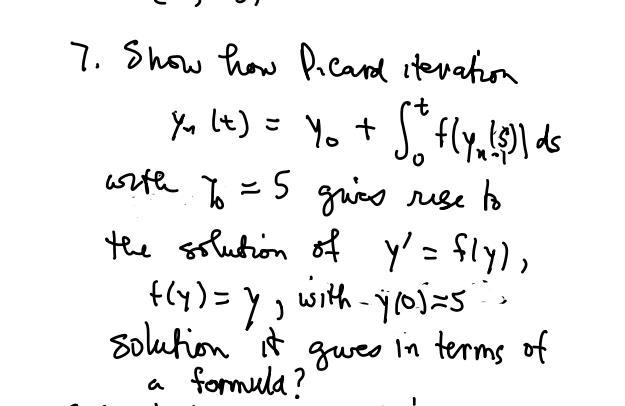 7. Show how Picard iteration
yₙ(t) = y₀ + ∫₀ᵗ f(yₙ₋₁(s)) ds
with y₀ = 5 gives rise to
the solution of y' = f(y),
f(y) = y, with y(0) = 5
solution it gives in terms of
a formula?